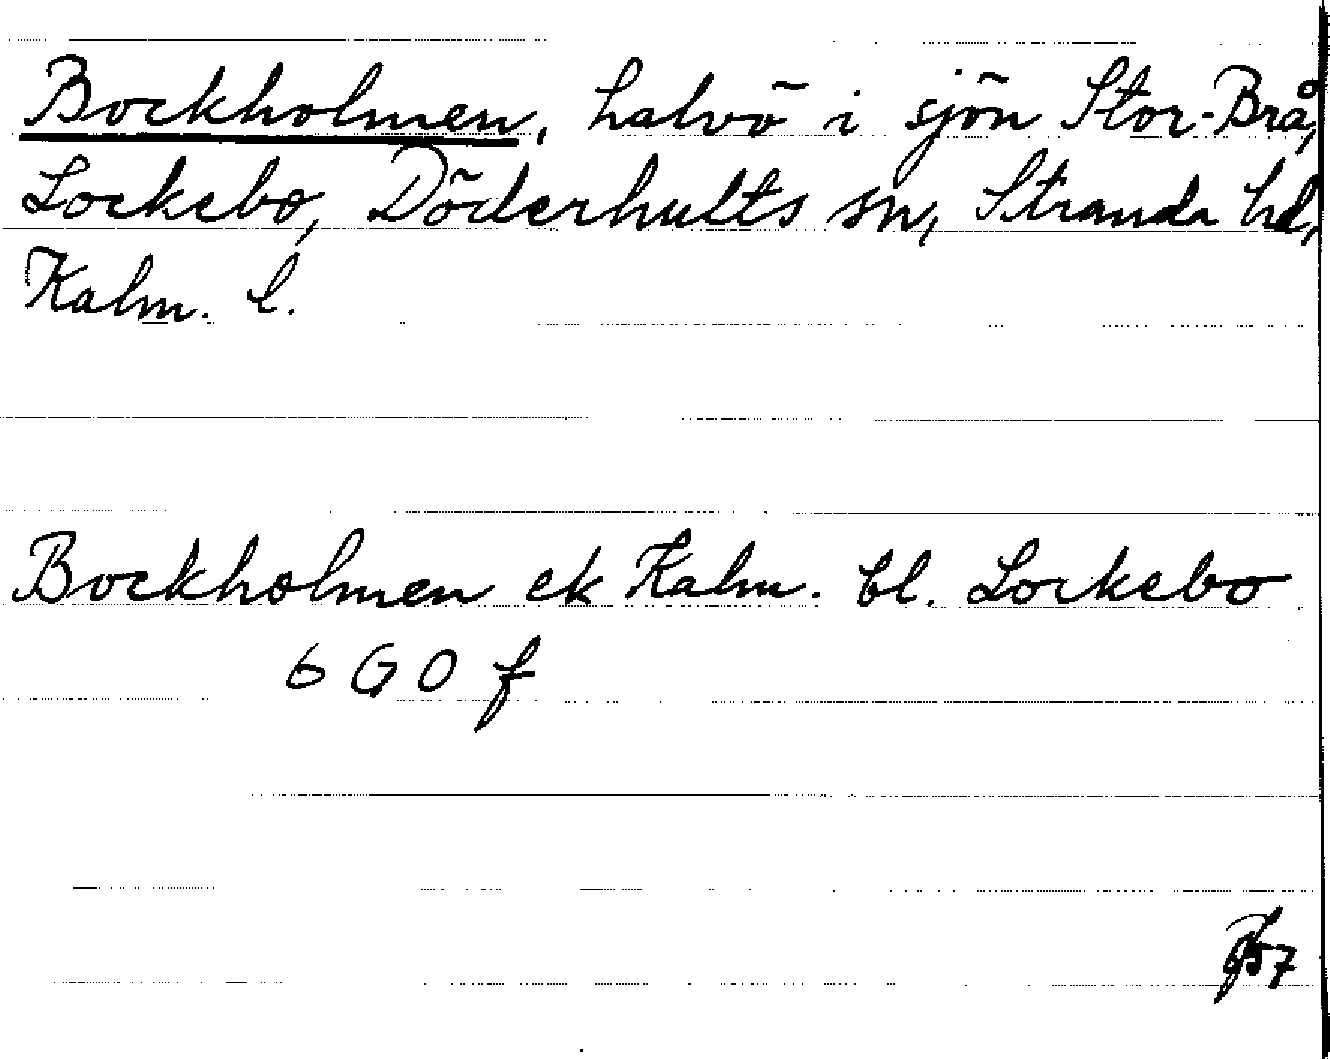 Bockholmen, halvö i sjön Stor-Brå,
Lockebo, Döderhults sn, Stranda hd,
Kalm. l.
Bockholmen ek Kalm. bl. Lockebo
6 G 0 f
57